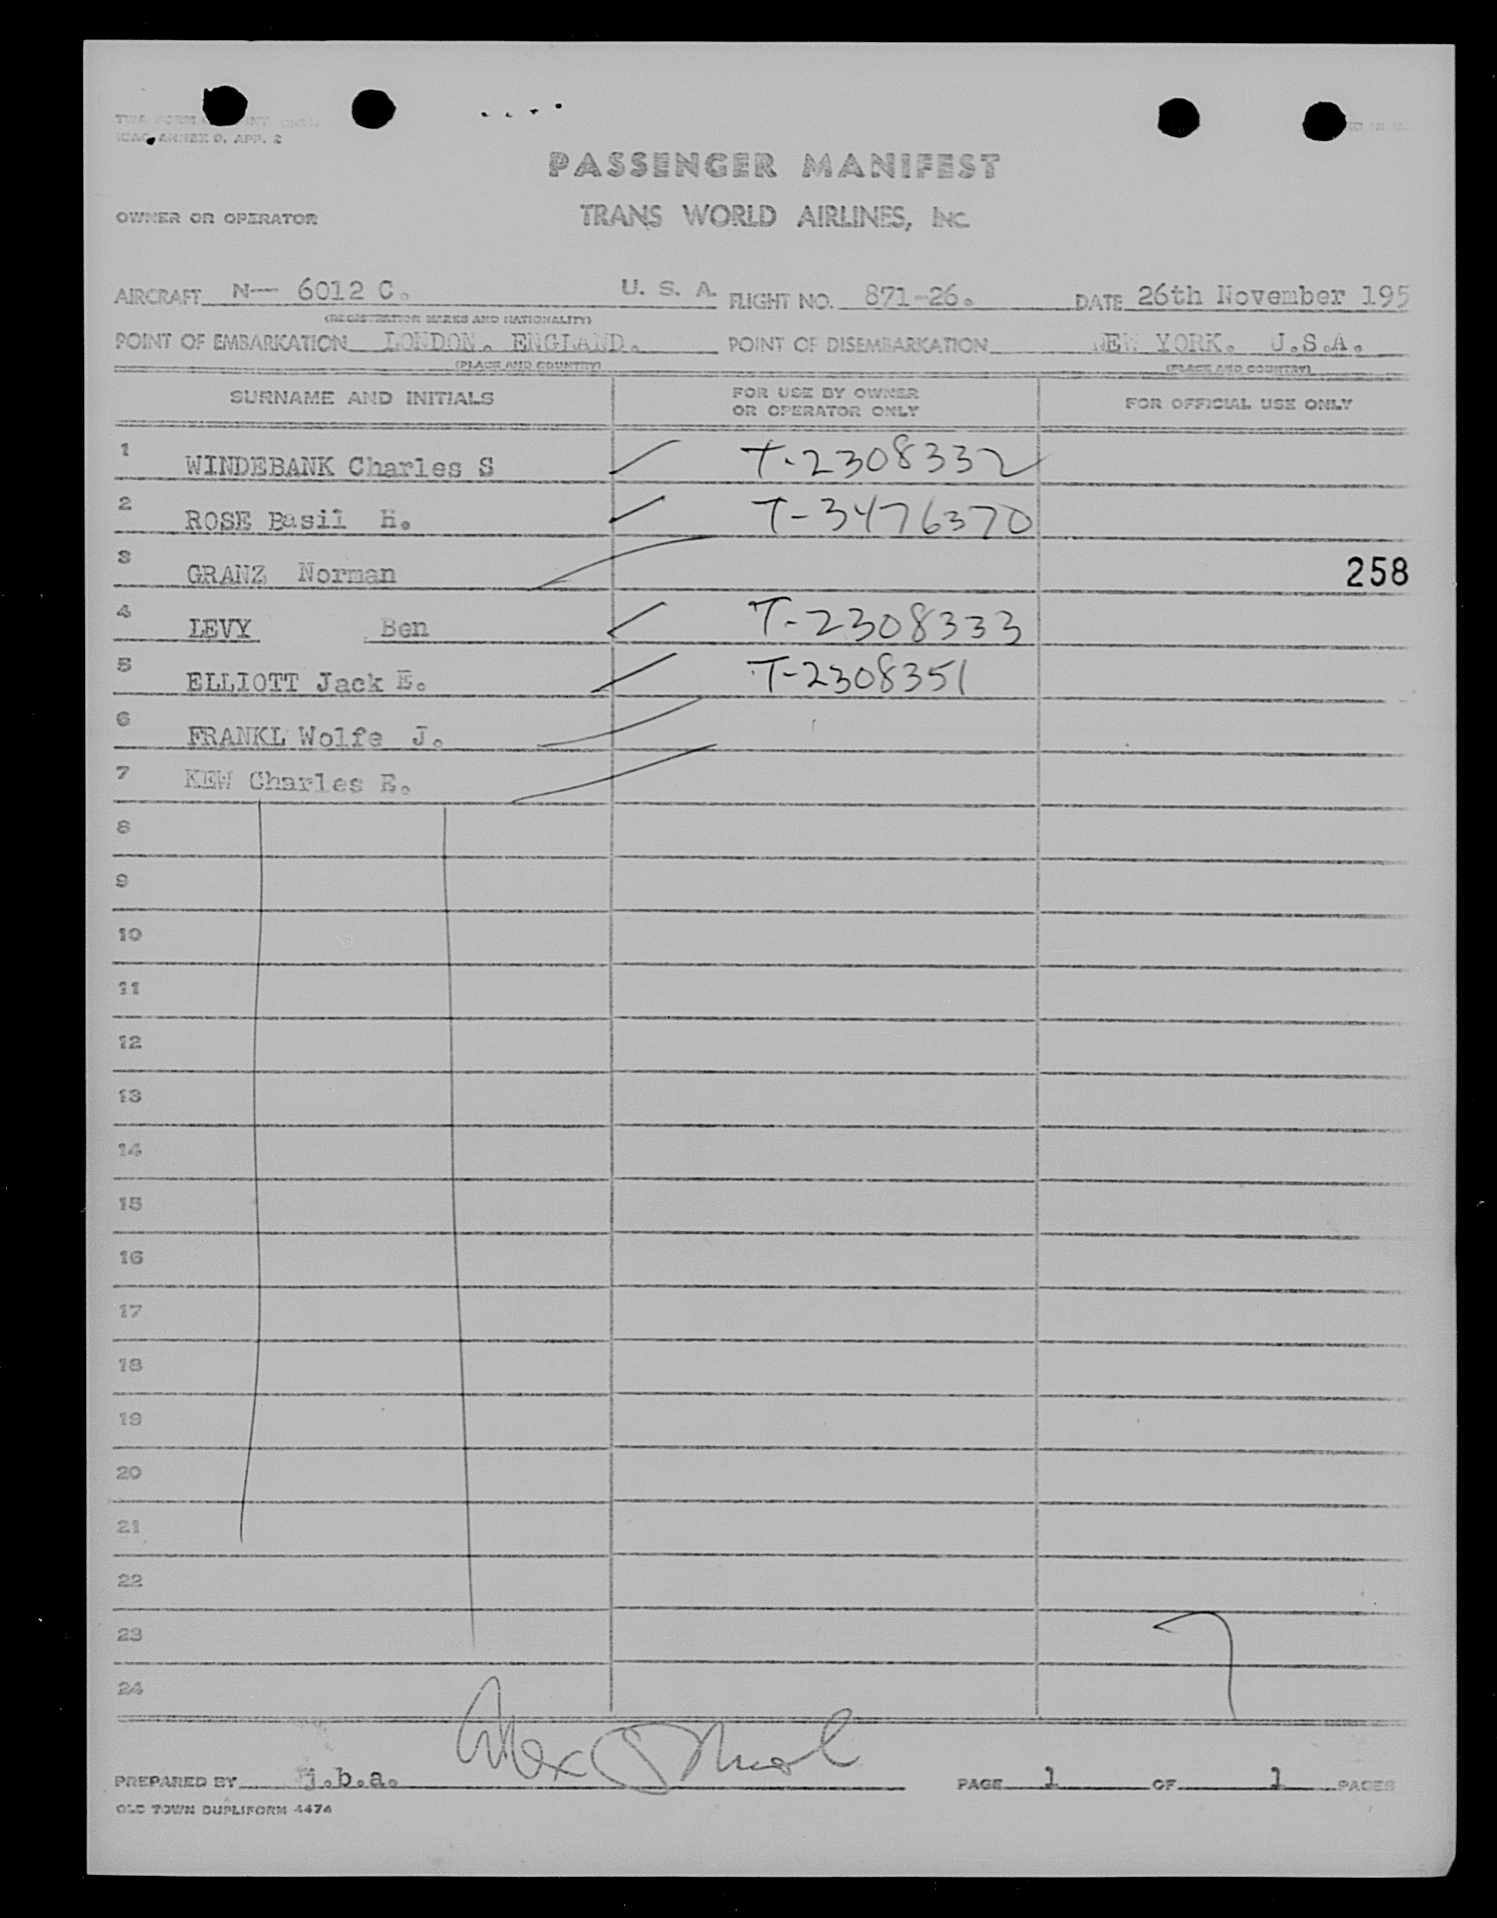 ICAO ANNEX 9, APP. 2
PASSENGER MANIFEST
OWNER OR OPERATOR
TRANS WORLD AIRLINES, INC.
AIRCRAFT N— 6012 C. U. S. A. FLIGHT NO. 871-26. DATE 26th November 195
(REGISTRATION MARKS AND NATIONALITY)
POINT OF EMBARKATION LONDON. ENGLAND. POINT OF DISEMBARKATION NEW YORK. U.S.A.
(PLACE AND COUNTRY) (PLACE AND COUNTRY)
SURNAME AND INITIALS FOR USE BY OWNER OR OPERATOR ONLY FOR OFFICIAL USE ONLY
1 WINDEBANK Charles S T-2308332
2 ROSE Basil H. T-3476370
3 GRANZ Norman 258
4 LEVY Ben T-2308333
5 ELLIOTT Jack E. T-2308351
6 FRANKL Wolfe J.
7 KEW Charles E.
8
9
10
11
12
13
14
15
16
17
18
19
20
21
22
23
24
PREPARED BY j.b.a. PAGE 1 OF 1 PAGES
OLD TOWN DUPLIFORM 4474